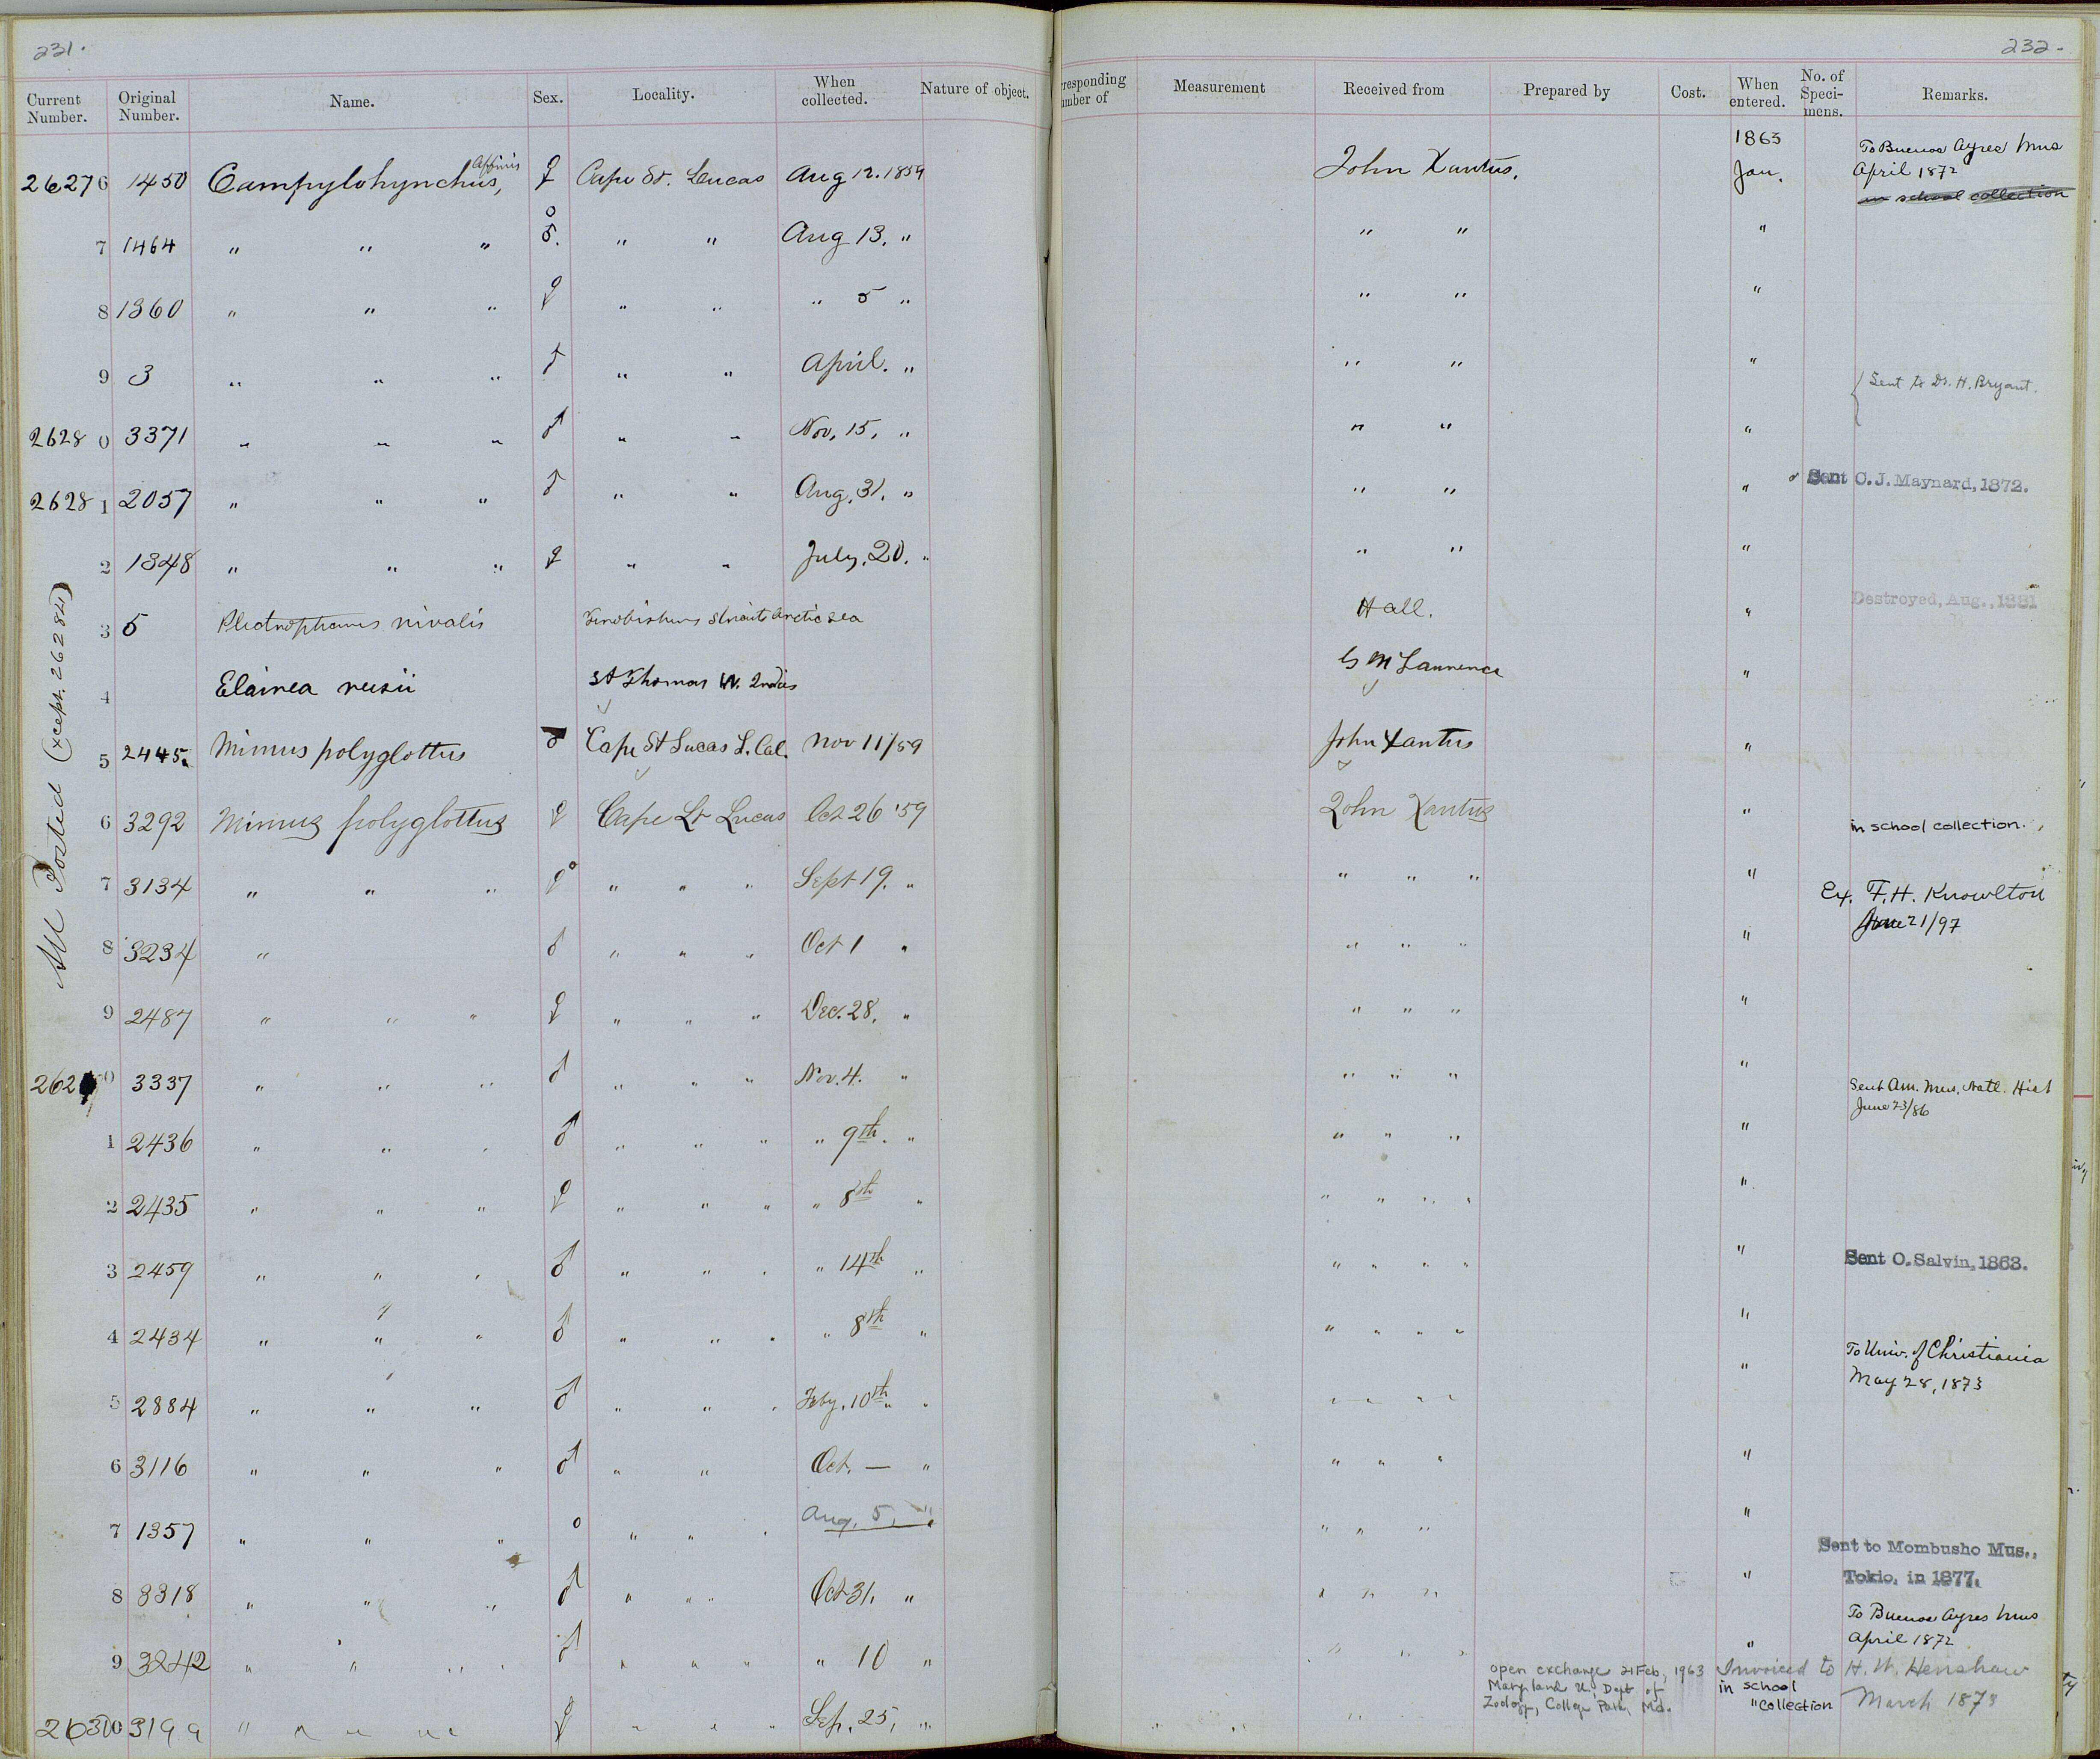 231.
232.
Current Number. Original Number. Name. Sex. Locality. When collected. Nature of object. rresponding umber of Measurement Received from Prepared by Cost. When entered. No. of Speci- mens. Remarks.
26276 1450 Campylohynchus, Affinis ♀ Cape St. Lucas Aug 12. 1859 John Xantus. 1863 Jan. To Buenos Ayres Mus April 1872 in school collection
7 1464 " " " ♂. " " Aug 13. " " " "
8 1360 " " " ♀ " " " 5 " " " "
9 3 " " " ♂ " " April. " " " " Sent to Dr. H. Bryant.
26280 3371 " " " ♂ " " Nov, 15, " " " "
26281 2057 " " " ♂ " " Aug, 31, " " " " Sent C. J. Maynard, 1872.
2 1348 " " " ♀ " " July, 20. " " " "
3 5 Plectrophanes nivalis Arctic Sea Hall. " Destroyed, Aug., 1881
4 Elainea St Thomas W. Indies G N Lawrence "
5 2445. Mimus polyglottus ♂ Cape St Lucas L. Cal. Nov 11/59 John Xantus "
6 3292 Mimus polyglottus ♀ Cape St Lucas Oct 26 '59 John Xantus " in school collection.
7 3134 " " " ♀ " " " Sept 19. " " " " " Ex. F. H. Knowlton June 21/97
8 3234 " ♂ " " " Oct 1 " " " " "
9 2487 " " " ♀ " " " Dec. 28, " " " " "
262 0 3337 " " " ♂ " " " Nov. 4. " " " " " Sent Am. Mus. Natl. Hist June 23/86
1 2436 " " " ♂ " " " " 9th. " " " " "
2 2435 " " " ♀ " " " " 8th " " " " " "
3 2459 " " " ♂ " " " " 14th " " " " " " Sent O. Salvin, 1863.
4 2434 " " " ♂ " " " " 8th " " " " " "
5 2884 " " " ♂ " " " Feby. 10th " " " " " " To Univ. of Christiania May 28, 1873
6 3116 " " " ♂ " " Oct. — " " " " "
7 1357 " " " " " " Aug. 5, " " " " "
8 3318 " " " ♂ " " " Oct 31. " " " " " Sent to Mombusho Mus., Tokio, in 1877.
9 3242 " " " ♂ " " " " 10 " " " " " To Buenos Ayres Mus April 1872
26300 3199 " " " " ♀ " " " Sep. 25, " " " "
open exchange 21 Feb, 1963 Maryland U., Dept of Zoology, College Park, Md.
in school "collection
Invoiced to H. W. Henshaw March 1873
All Posted (xcept. 26284)